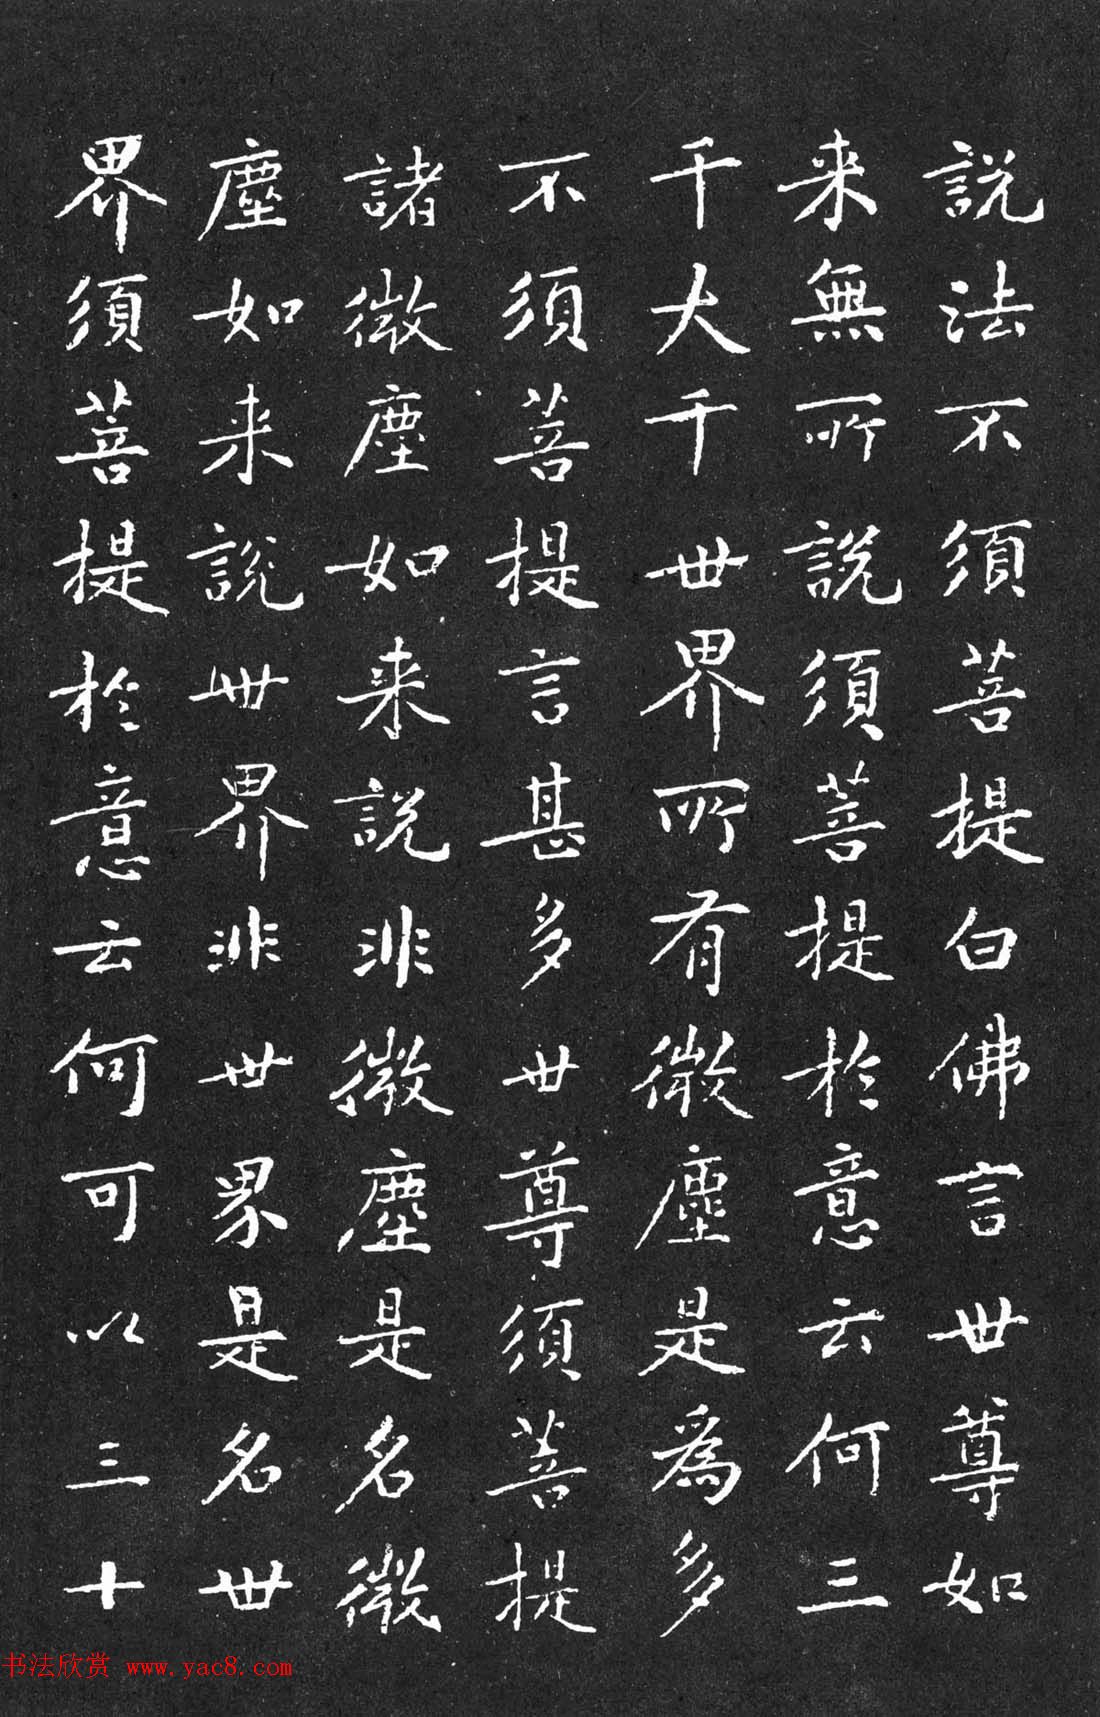 說法不須菩提白佛言世尊如
来無所說須菩提於意云何三
千大千世界所有微塵是為多
不須菩提言甚多世尊須菩提
諸微塵如来說非微塵是名微
塵如来說世界非世界是名世
界須菩提於意云何可以三十
书法欣赏 www.yac8.com